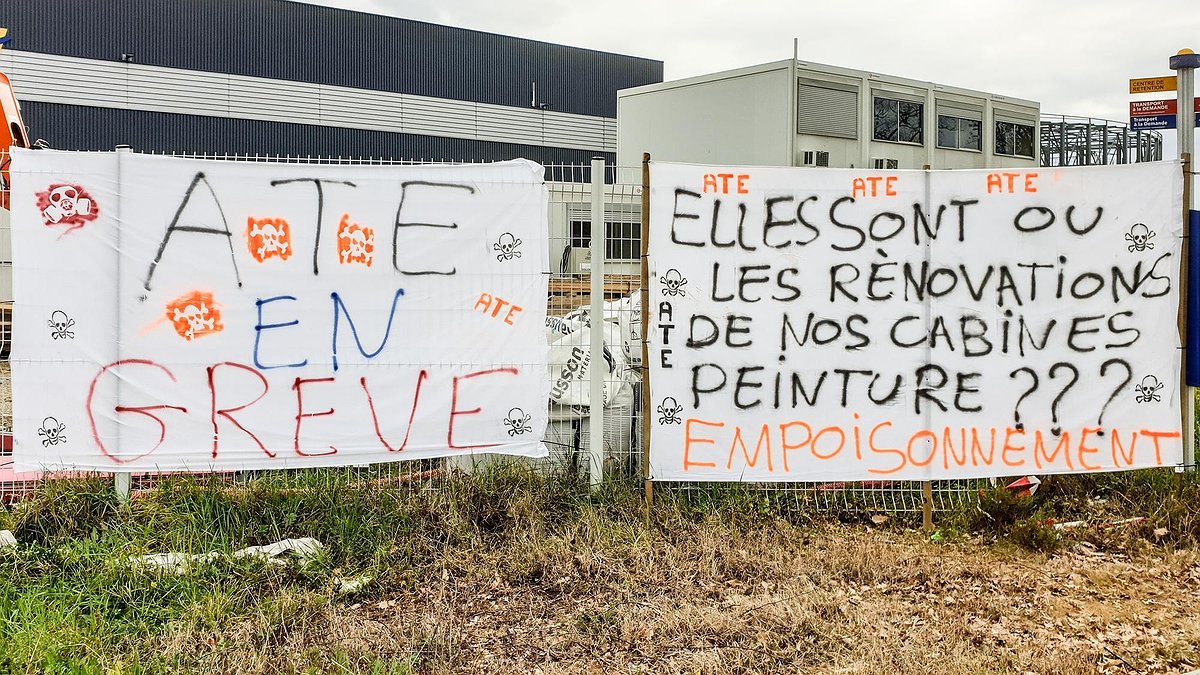 ATE
EN
ATE
GREVE
ATE ATE ATE
ELLES SONT OU
LES RÈNOVATIONS
ATE
DE NOS CABINES
PEINTURE ???
EMPOISONNEMENT
CENTRE DE
RETENTION
TRANSPORT
à la DEMANDE
Transport
à la Demande